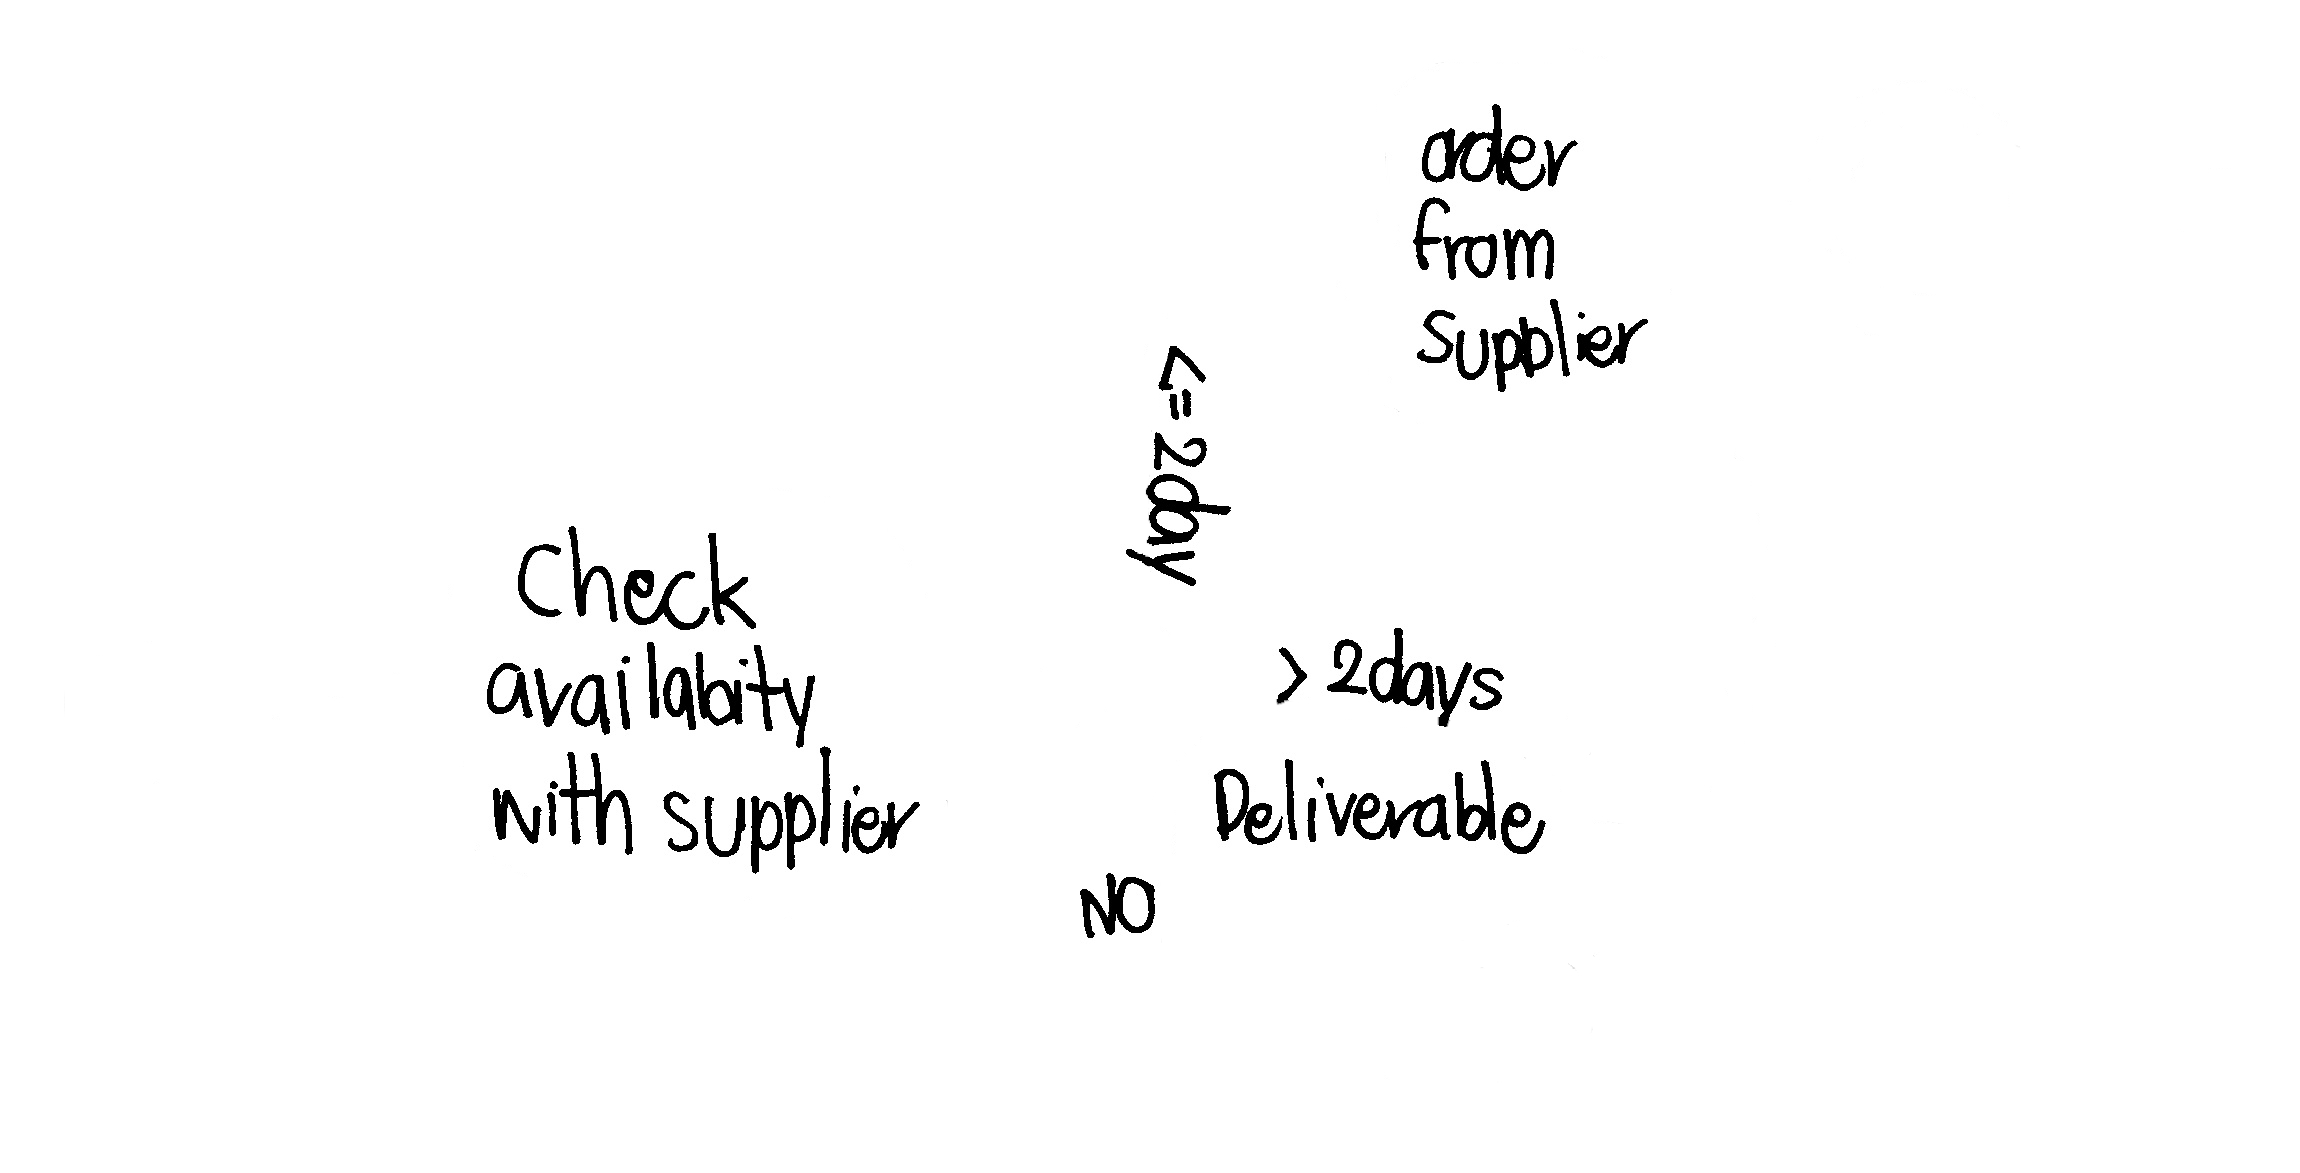 order
from
Supplier
<= 2day
Check
availabity
with supplier
> 2days
Deliverable
NO